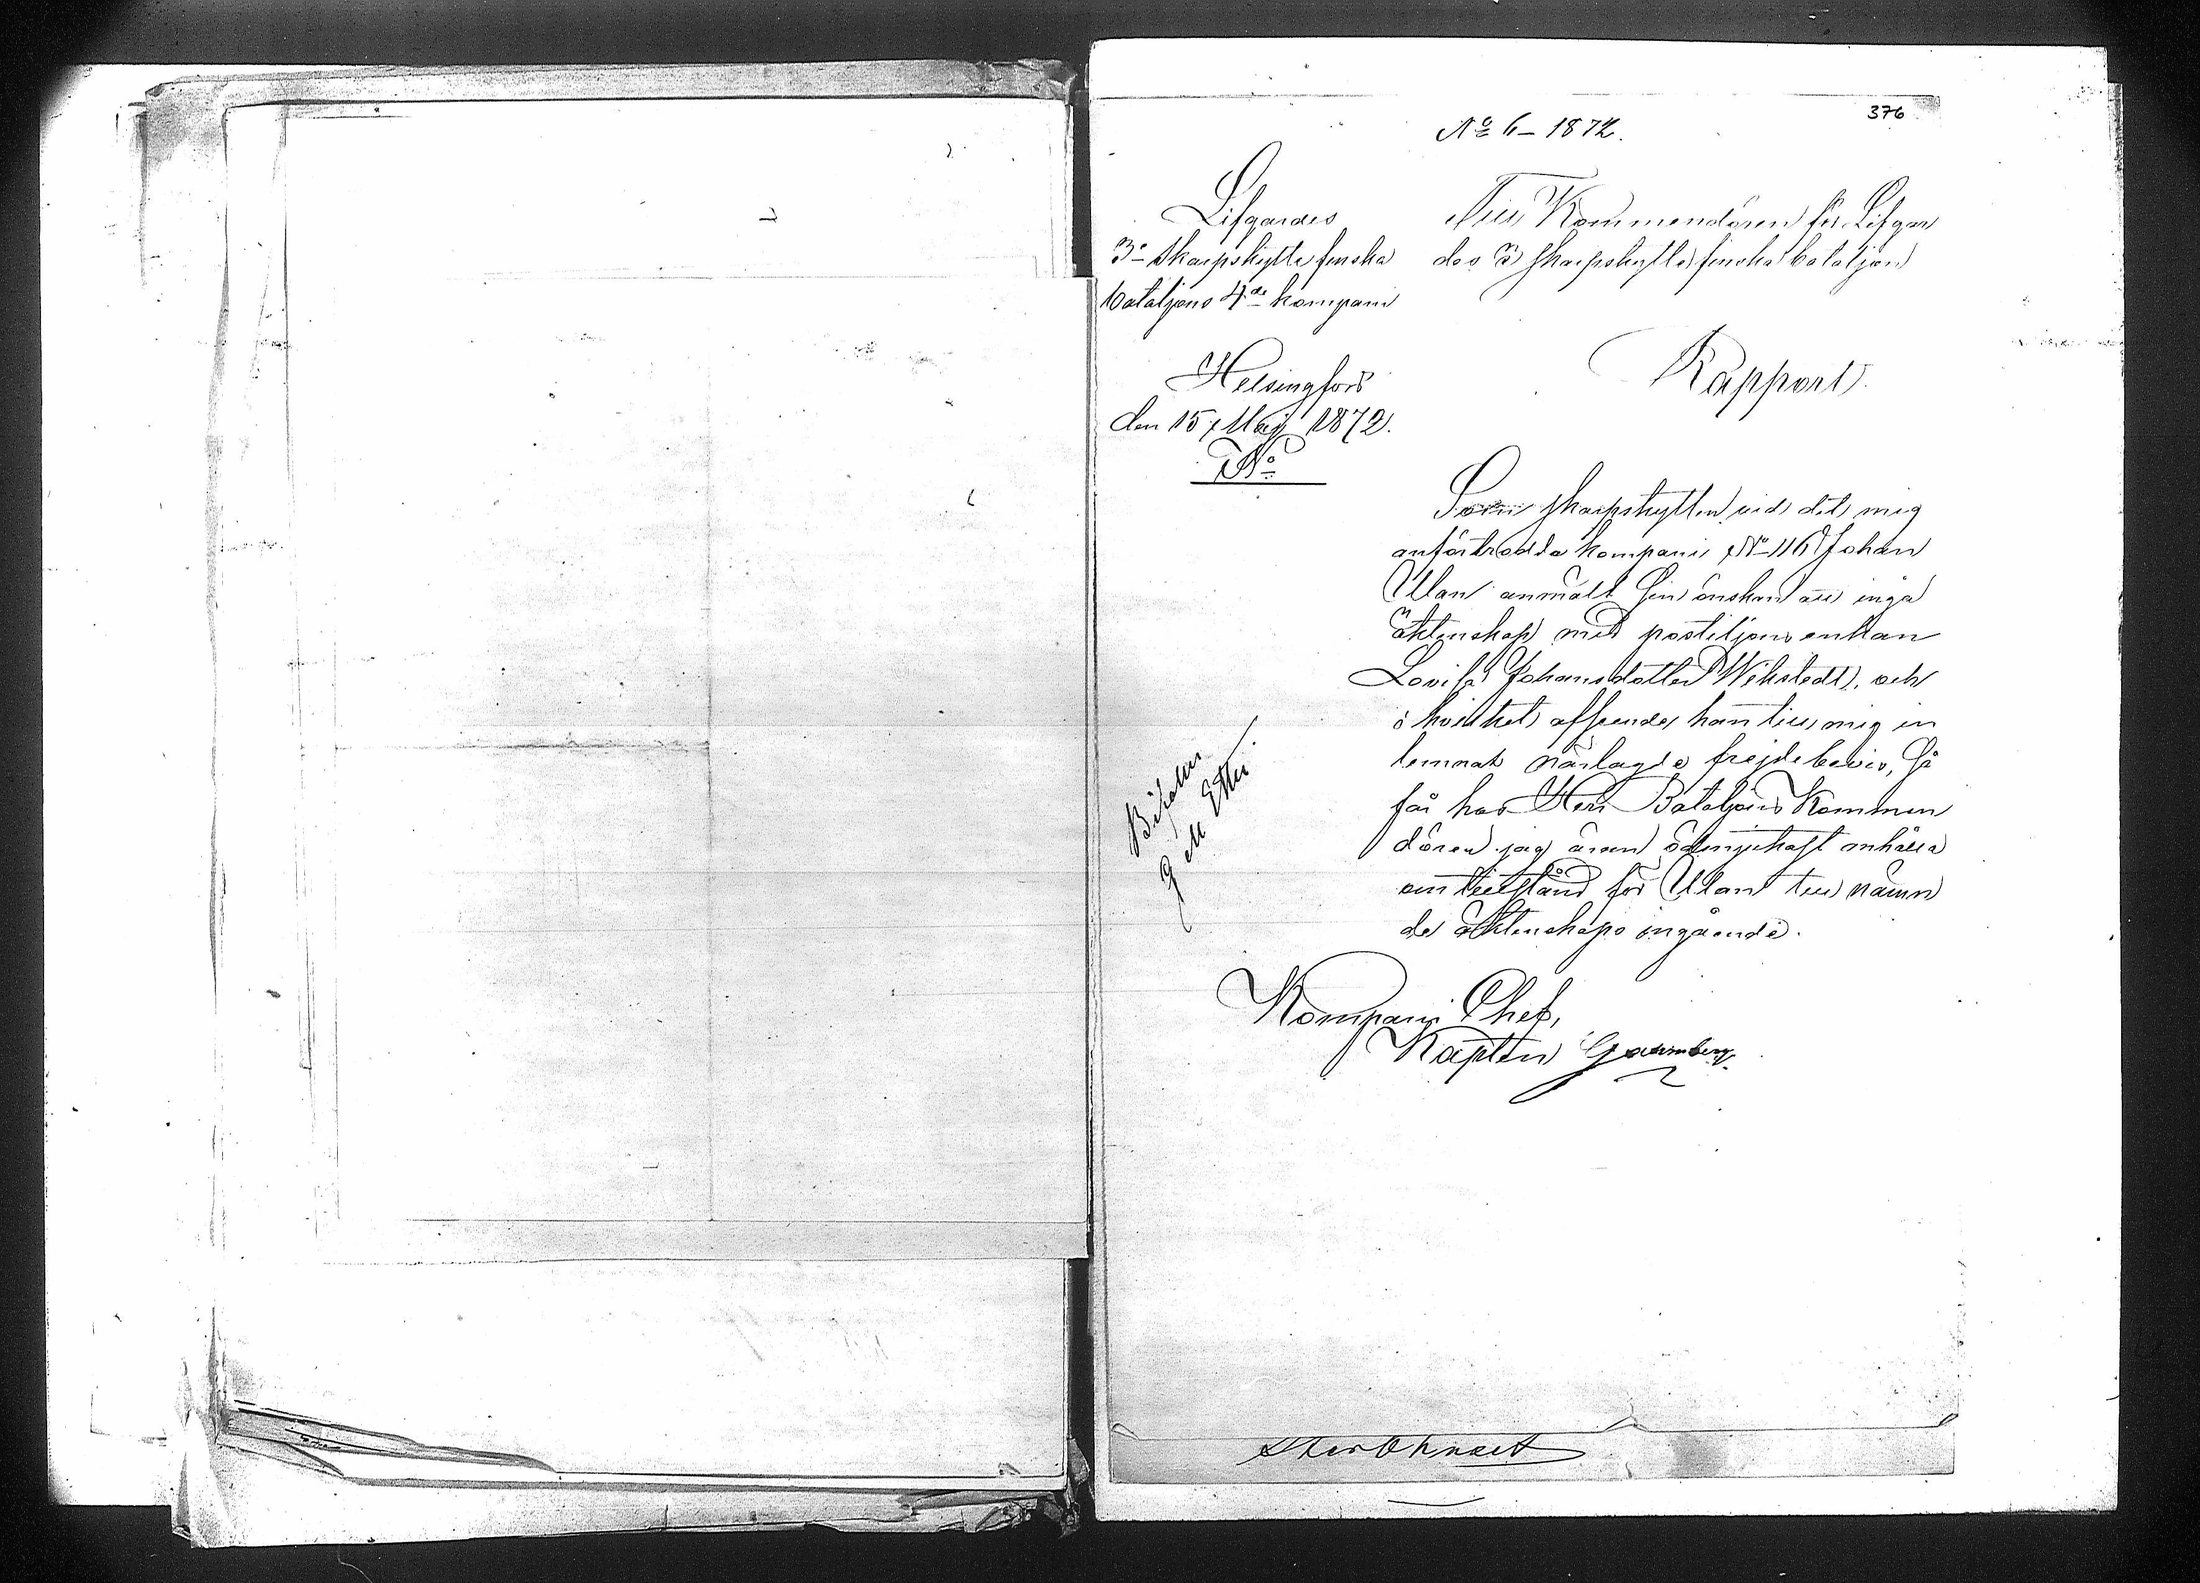 376
No 6 – 1872.
Lifgardes
3e skarpskytte finska
bataljons 4de kompani
Helsingfors
den 15 Maj 1872.
No
Till Kommendören för Lifgar
des 3e skarpskytte finska bataljon
Rapport.
Som skarpskytten vid det mig
anförtrodda kompani No 116 Johan
Ulan anmält sin önskan att ingå
äktenskap med postiljons enkan
Lovisa Johansdotter Wikstedt, och
i hvilket afseende han till mig in
lemnat närlagde frejdebevis, så
får hos Herr Bataljons Kommen
dören jag äran ödmjukast anhålla
om tillstånd för Ulan till nämn
de äktenskaps ingående.
Bifalles
Kompani Chef,
Kapten